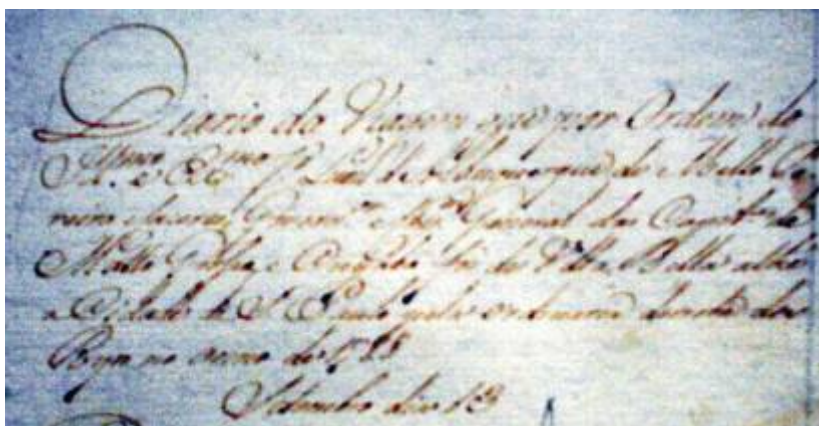 Diario da Viagem que por Ordem do
Illmo. e Exmo. Sr. Luis de Albuquerque de Mello Pe
reira e Caceres Governor. e Cap. General das Capit.as de
Matto Grosso, e Cuyaba fiz de Villa Bella athe
a Cidade de S. Paulo pela ordinaria derrota dos
Ryos no anno de 1788
Setembro dia 13